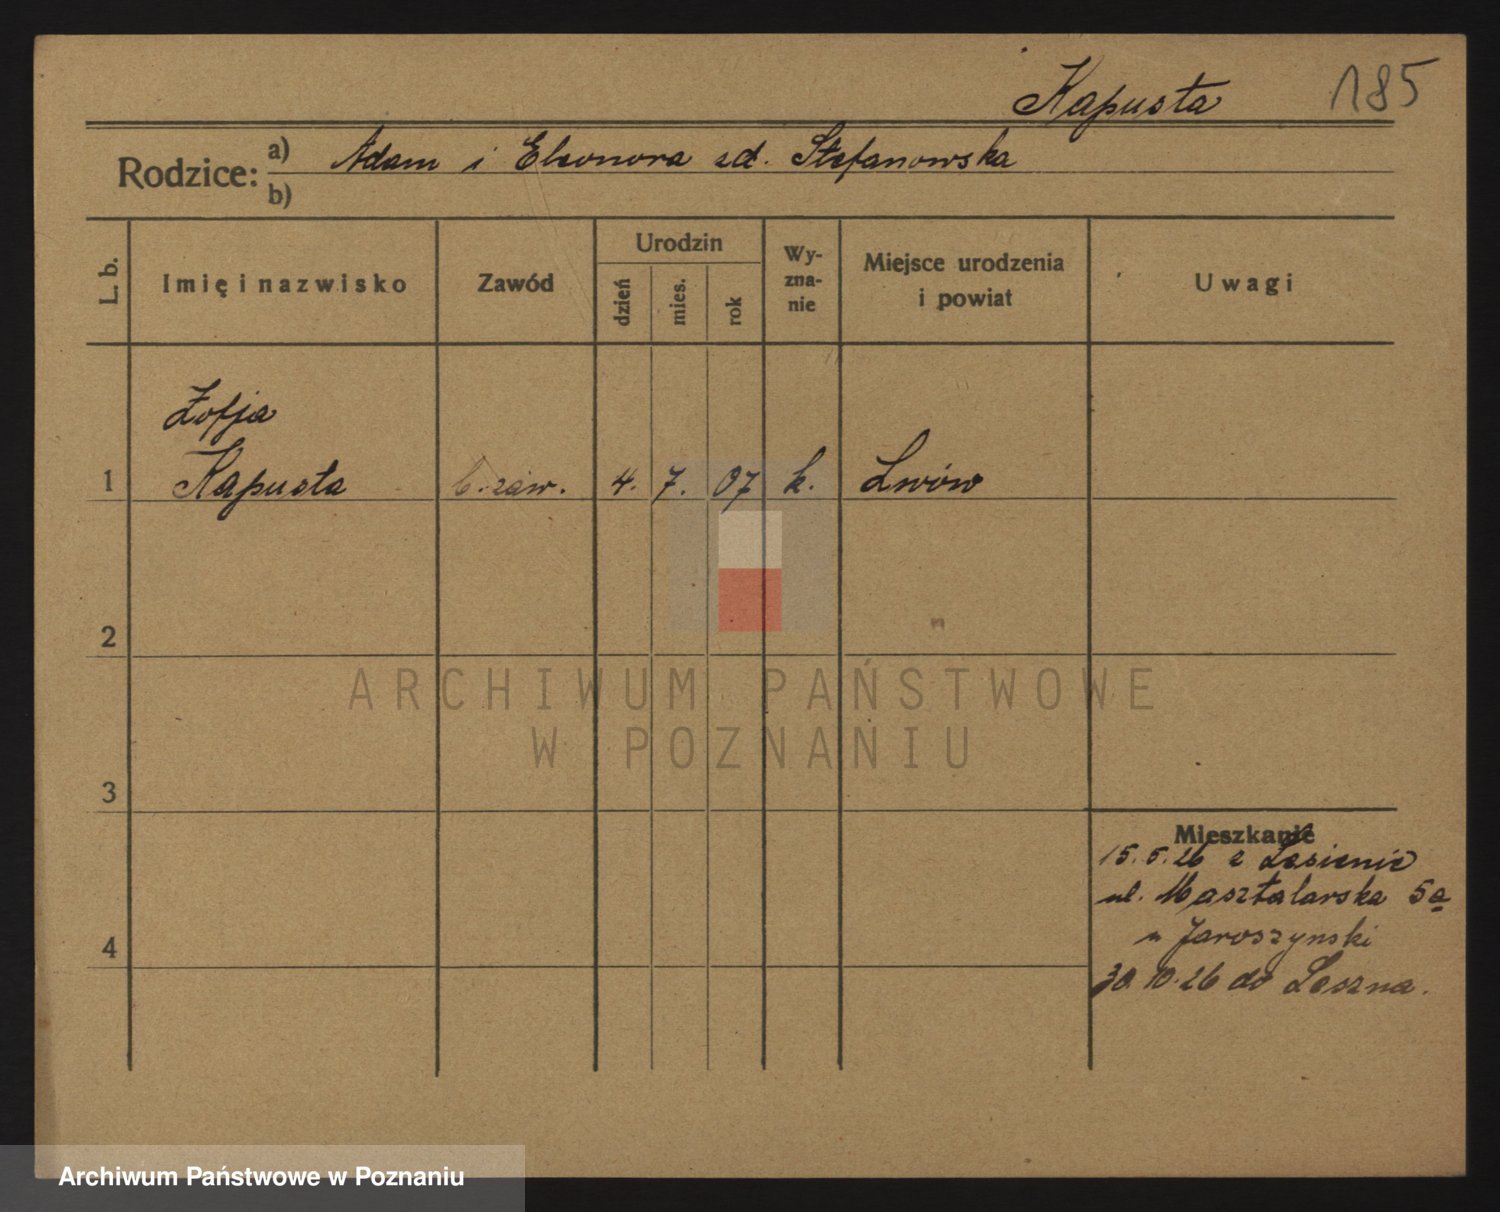 Kapusta 185
Rodzice: a) Adam i Eleonora zd. Stefanowska
b)
L. b.
Imię i nazwisko
Zawód
Urodzin
dzień
mies.
rok
Wy-
zna-
nie
Miejsce urodzenia
i powiat
Uwagi
Zofja
1 Kapusta b. zaw. 4. 7. 07 k. Lwów
2
ARCHIWUM PAŃSTWOWE
W POZNANIU
3
Mieszkanie
15.5.26 z Lesienic
ul. Masztalarska 5a
u Jaroszynski
4
30.10.26 do Leszna.
Archiwum Państwowe w Poznaniu